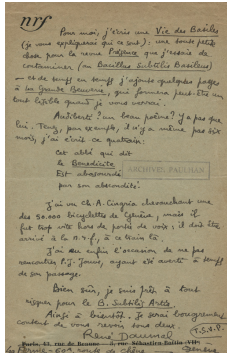 nrf
Pour moi, j'écris une Vie des Basiles
(je vous expliquerai qui ce sont) : une toute petite
chose pour la revue que j'essaie de
contaminer (au Bacillus Subtilis Basileus)
— et de temps en temps j'ajoute quelques pages
à la Grande Beuverie, qui formera peut-être un
tout lisible quand je vous verrai.
Audiberti ? un beau poème ? Y a pas que
lui. Tenez, par exemple, il n'y a même pas dix
mois, j'ai écrit ce quatrain :
Cet abbé qui dit
le Benedicite
Est abasourdi
par son absurdité.
ARCHIVES PAULHAN
J'ai vu Ch. A. Cingria chevauchant une
des 50.000 bicyclettes de Genève, mais il
fut trop vite hors de portée de voix ; il doit être
arrivé à la n.r.f., à ce train-là.
J'ai eu enfin l'occasion de ne pas
rencontrer P.J. Jouve, ayant été averti à temps
de son passage.
Bien sûr, je suis prêt à tout
risquer pour le B. Subtilis Artis.
Ainsi à bientôt. Je serai bougrement
content de vous revoir tous deux.
René Daumal
T.S.V.P.
Paris, 43, rue de Beaune — 5, rue Sébastien-Bottin (VII
60 route de Chêne Genève